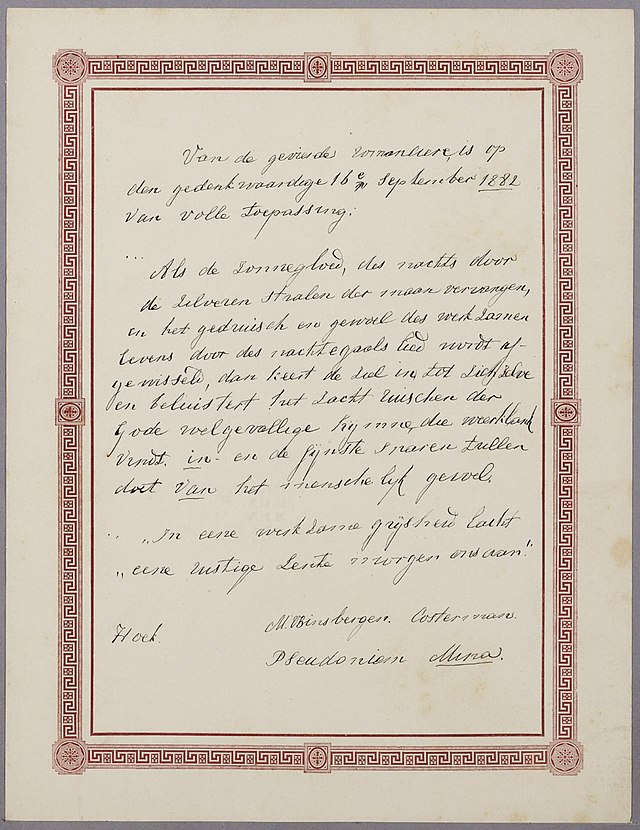 Van de gevierde romanciere, is op
den gedenkwaardige 16e September 1882
van volle toepassing:
... Als de zonnegloed, des nachts door
de zilveren stralen der maan vervangen,
en het gedruisch en gewoel des werkzamen
levens door des nachtegaals lied wordt af-
gewisseld, dan keert de ziel in tot zich zelve
en beluistert het zacht ruischen der
Gode welgevallige hymne, die weerklank
vindt in- en de fijnste snaren trillen
doet van het menschelijk gevoel.
.. „In eene werkzame grijsheid lacht
„eene rustige Lente morgen ons aan."
Hoek. Costerman.
Pseudoniem Mina.